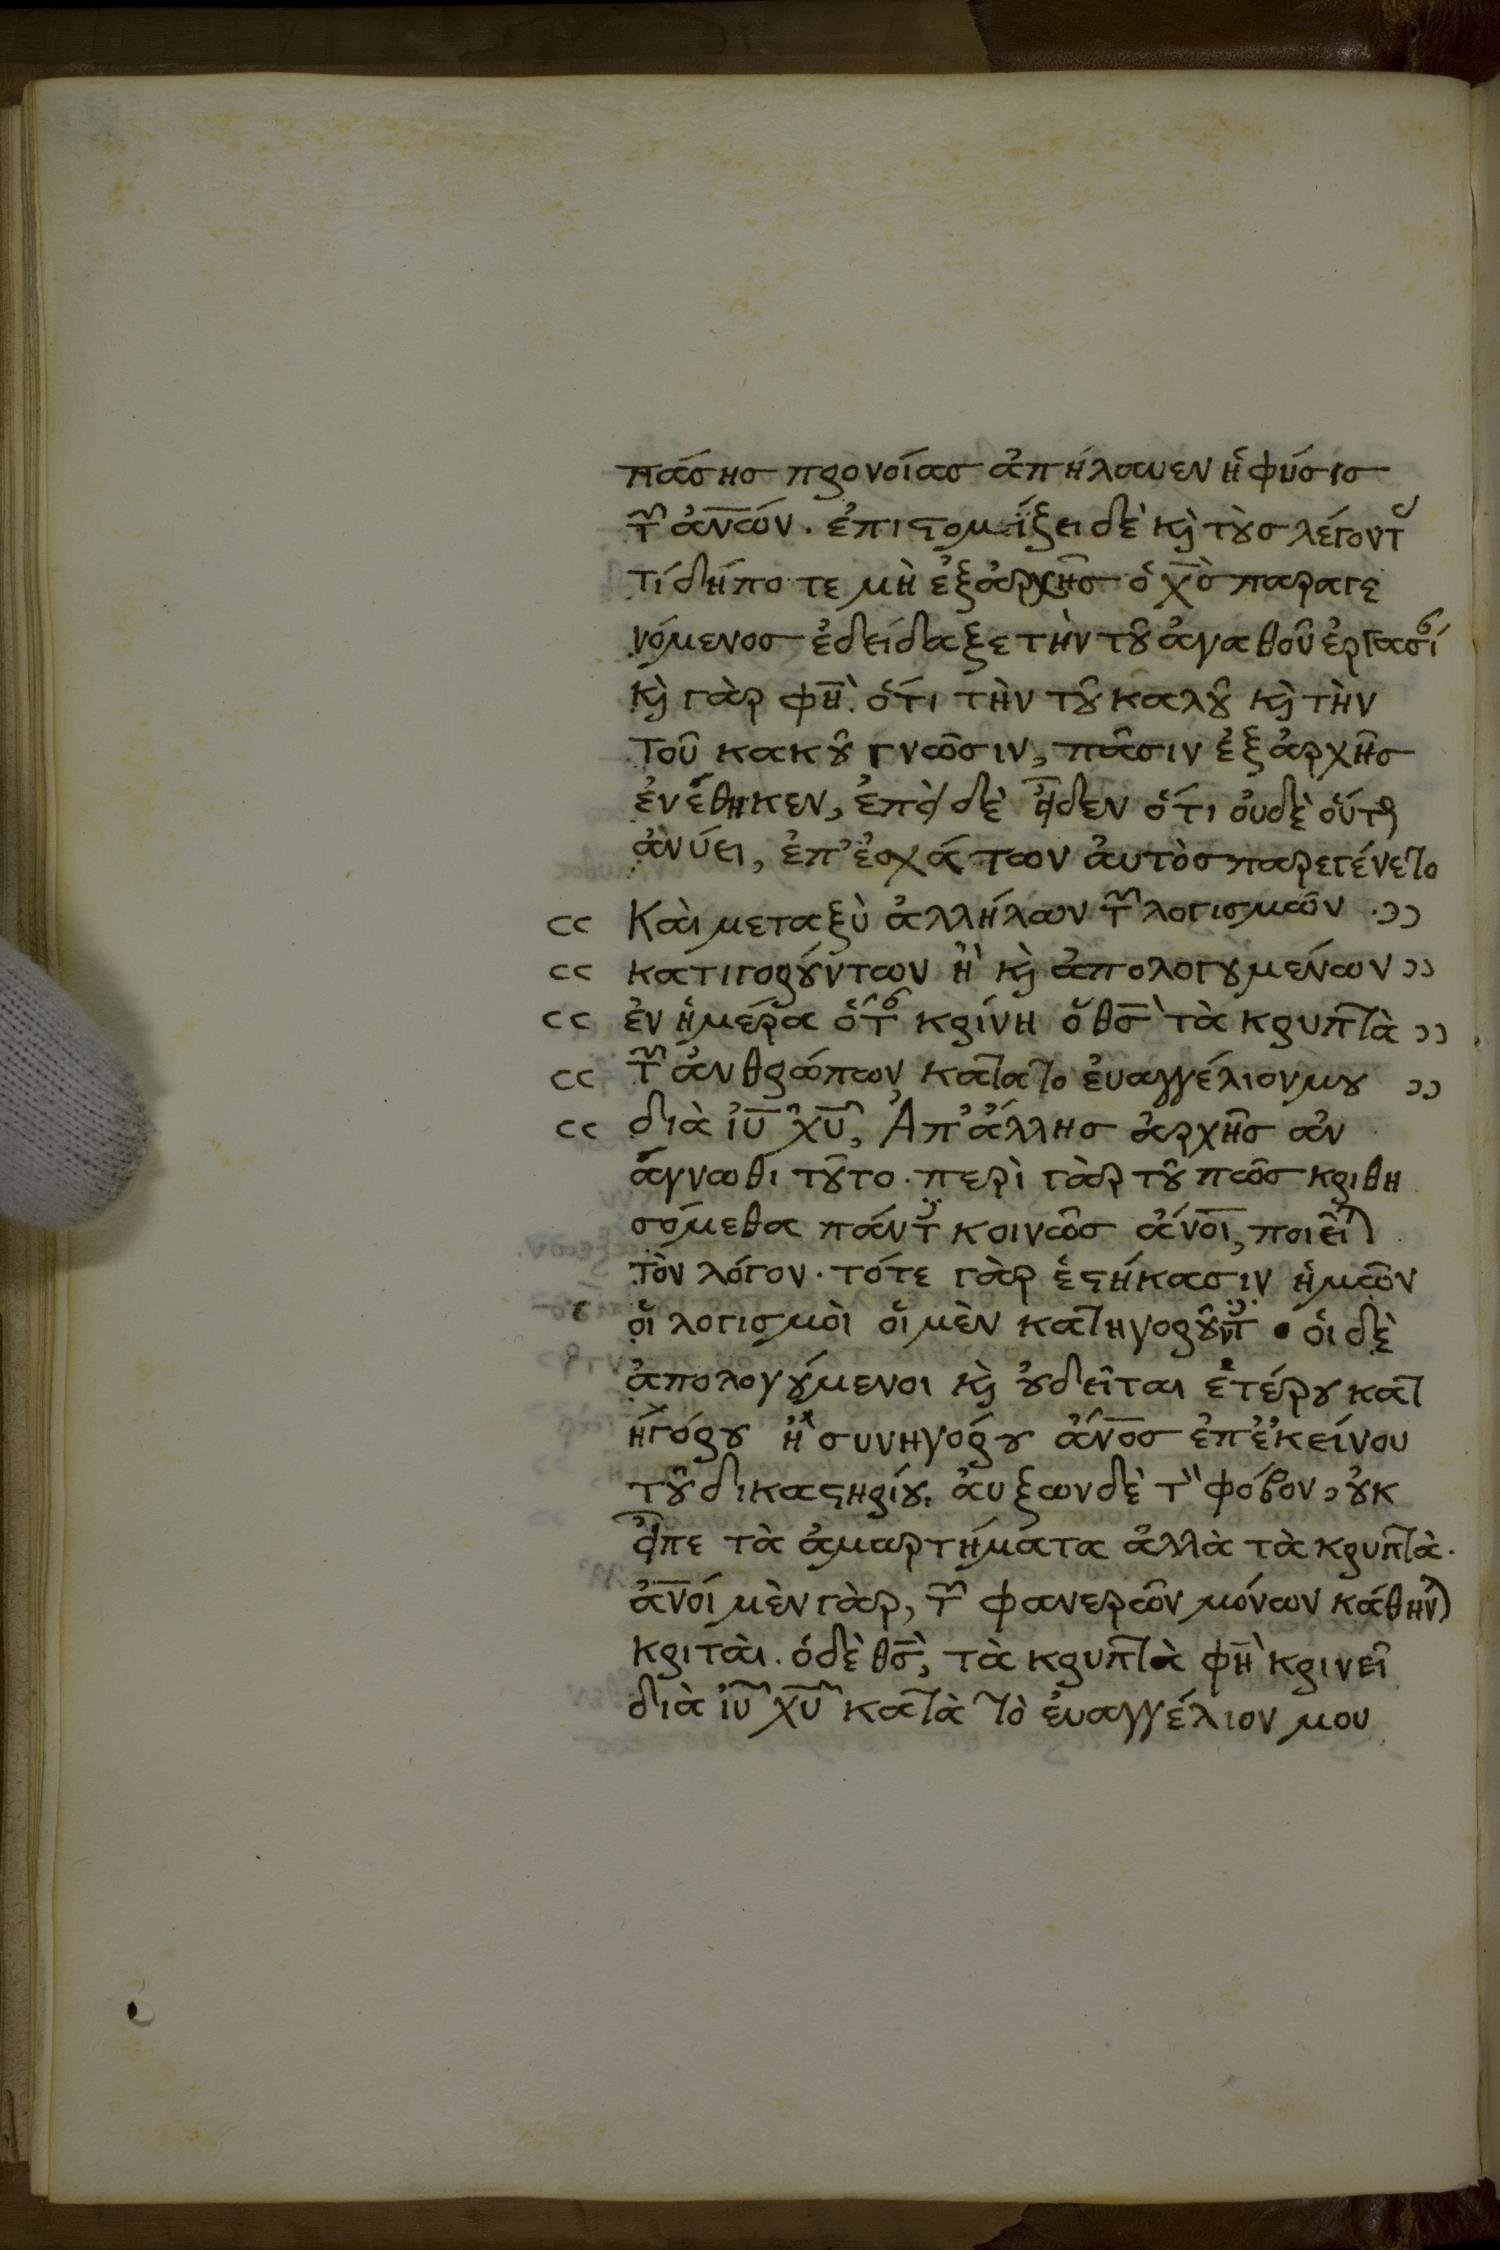 πάσησ προνοίασ ἀπήλαυεν ἡ φύσισ
τ῀ ἀν̅ω̅ν. ἐπιστομίζει δὲ κ̀ τοὺσ λέγοντ
τί δήποτε μὴ ἐξ ἀρχῆσ ὁ χ̅σ̅ παραγε
νόμενοσ ἐδείδαξε τὴν τοῦ ἀγαθοῦ ἐργασί
κ̀ γὰρ φη̅. ὅτι τὴν τοῦ καλοῦ κ̀ τὴν
τοῦ κακοῦ γνῶσιν, πᾶσιν ἐξ ἀρχῆσ
ἐν ἔθηκεν, ἐπεὶ δὲ εἶδεν ὅτι οὐδὲ οὕτωσ
ἀνύει, ἐπ' ἐσχάτων ἀυτὸσ παρεγένετο
Καὶ μεταξὺ ἀλλήλων τ῀ λογισμῶν
κατιγορούντων ἢ κ̀ ἀπολογουμένων
ἐν ἡμέρα ὅτ κρίνη ὁ θ̅σ̅ τὰ κρυπτὰ
τ῀ ἀνθρώπων κατατο ἐυαγγέλιον μου
διὰ ἰ̅υ̅ χ̅υ̅, Ἀπ' ἄλλησ ἀρχῆσ ἀν
άγνωθι τοῦτο. περὶ γὰρ τοῦ πῶσ κριθη
σόμεθα πάντ κοινῶσ ἄν̅ο̅ι, ποιεῖ)
τὸν λόγον. τότε γὰρ ἑστήκασιν ἡμῶν
οἱ λογισμοὶ οἱ μὲν κατηγοροῦντ • οἱ δὲ
ἀπολογούμενοι κ̀ οὐ δεῖται ἑτέρου κατ
ηγόρου ἢ συνηγόρου ἄν̅ο̅σ ἐπ' ἐκείνου
τοῦ δικαστηρίου. ἀυξων δὲ τ̀ φόβον, οὐκ
εἶπε τὰ ἁμαρτήματα ἀλλὰ τὰ κρυπτὰ.
ἄν̅ο̅ι μὲν γὰρ, τ῀ φανερῶν μόνων κάθην)
κριτὰι. ὁ δὲ θ̅σ̅, τὰ κρυπτὰ φη̅ κρινεῖ
διὰ ἰ̅υ̅ χ̅υ̅ κατὰ τὸ ἐυαγγέλιον μου